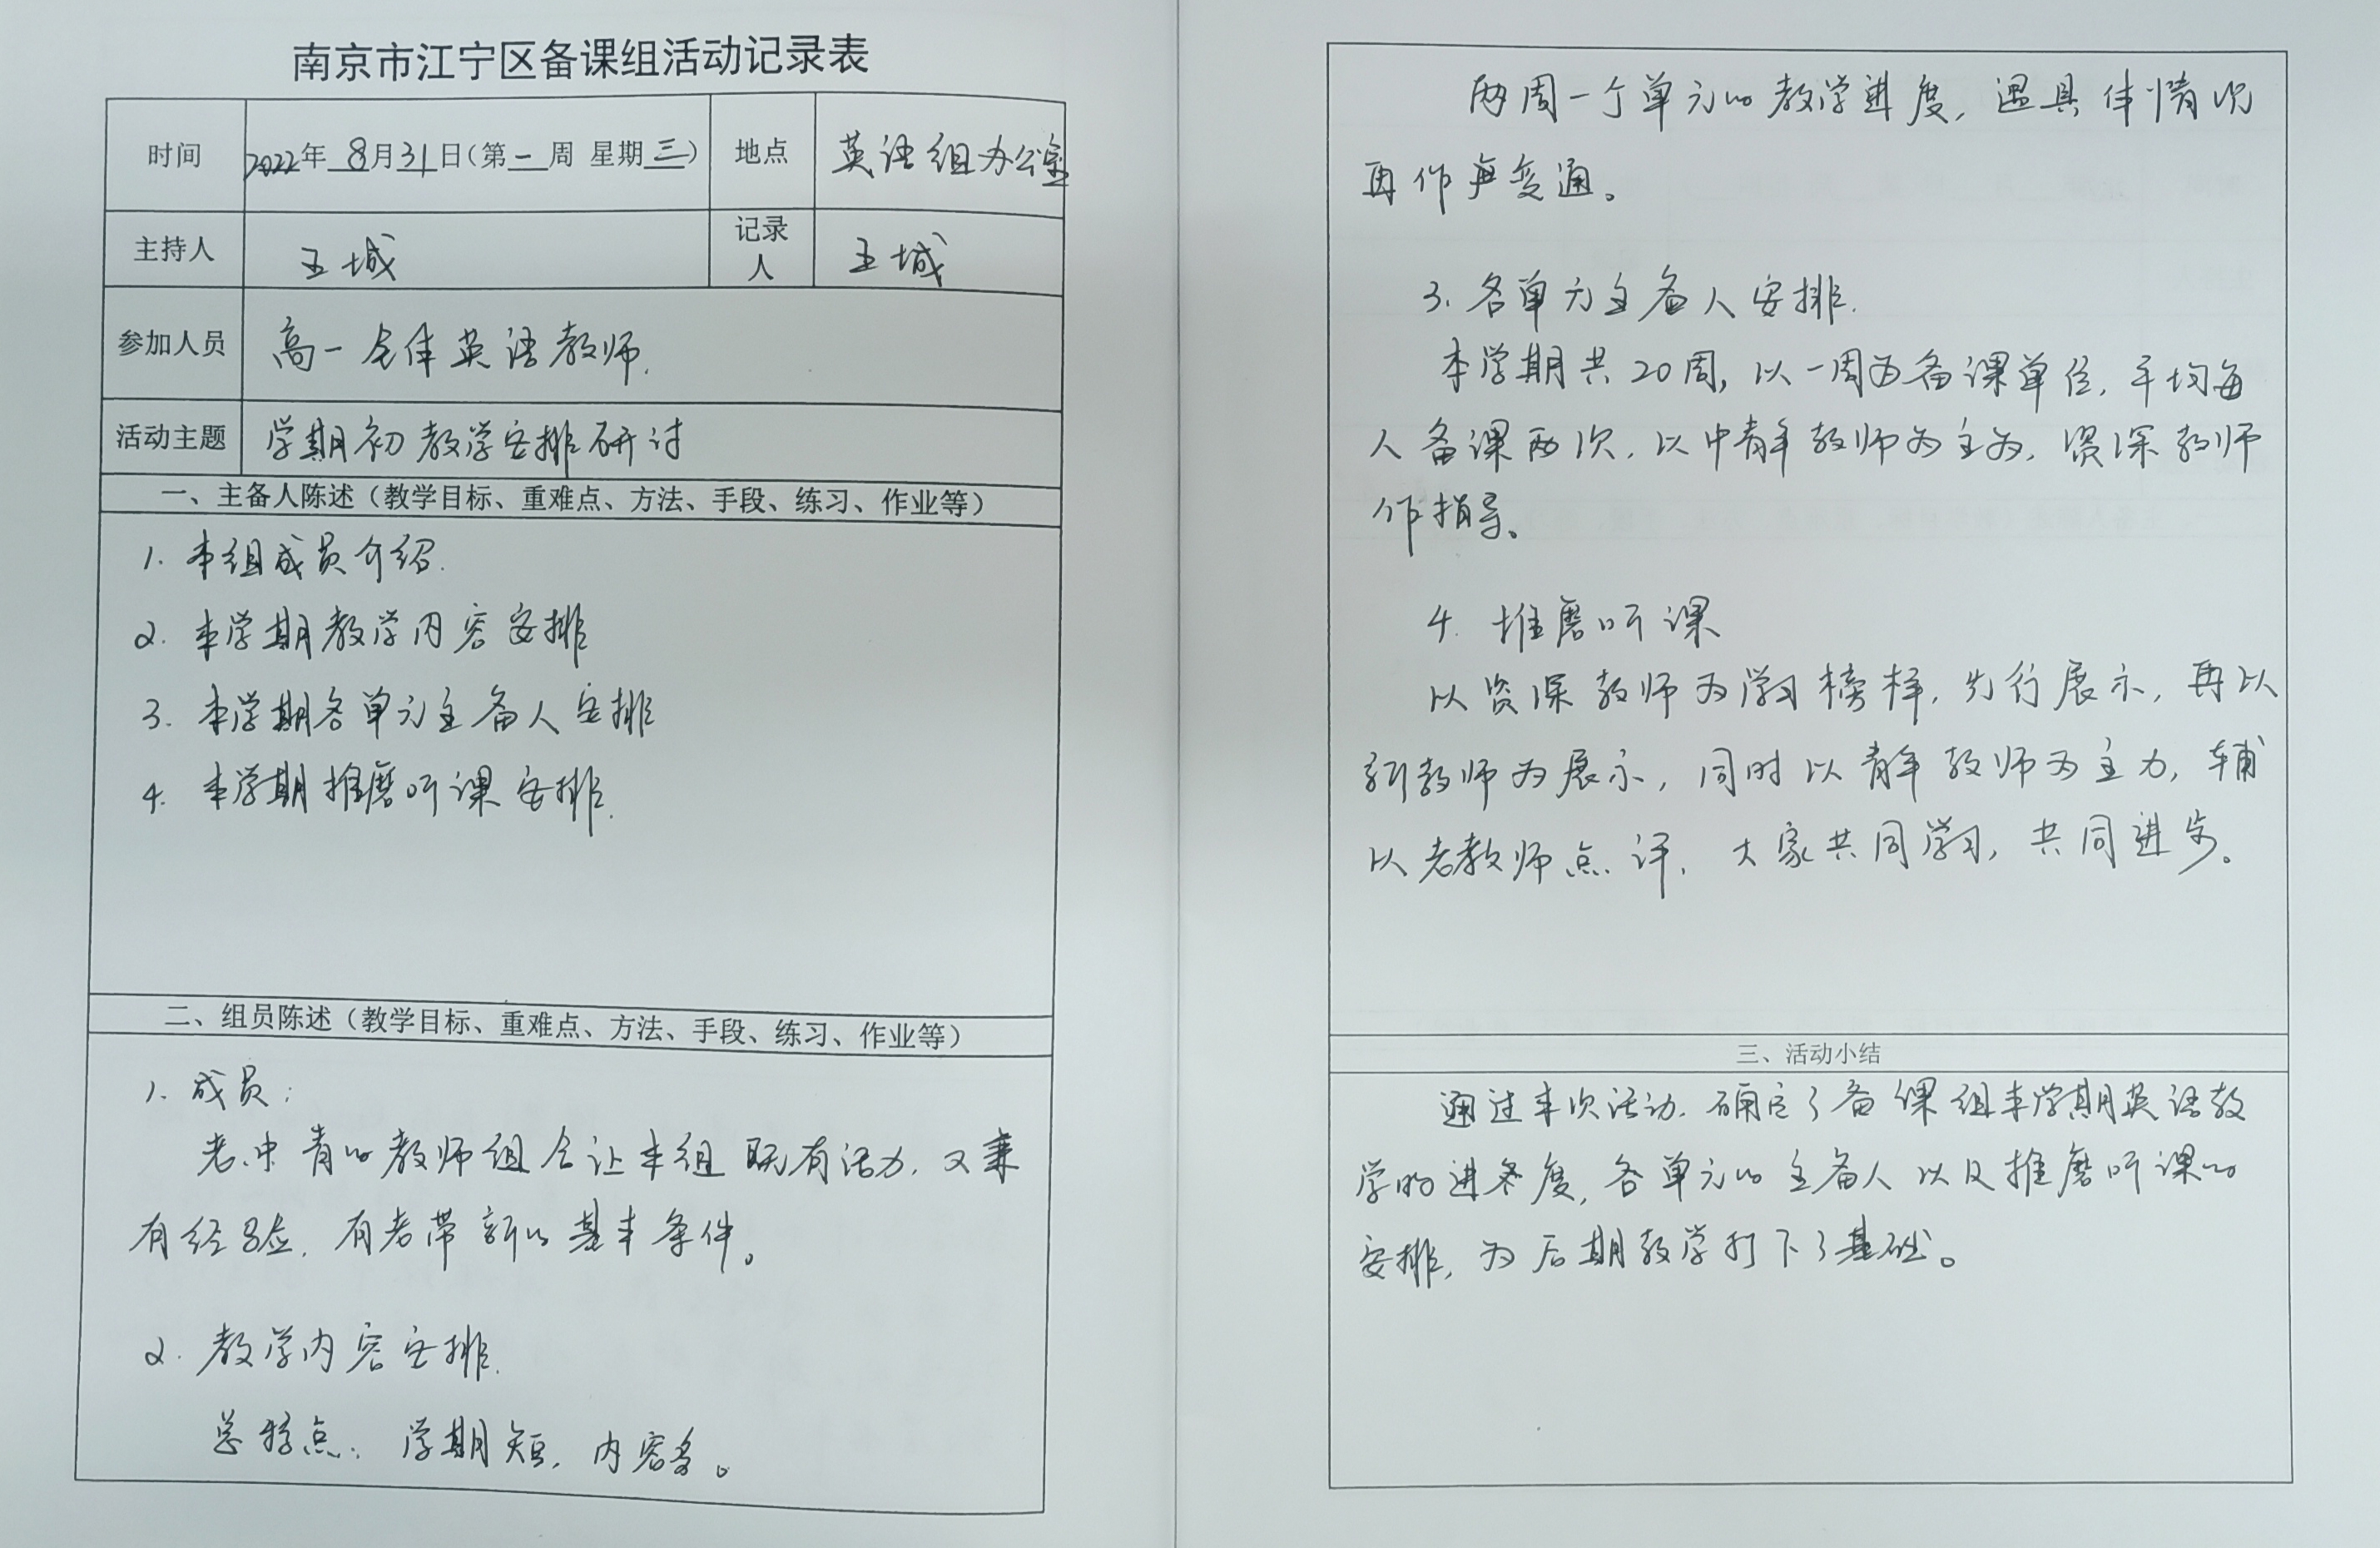 南京市江宁区备课组活动记录表
时间 2022年 8月31日（第一周 星期三） 地点 英语组办公室
主持人 王城 记录人 王城
参加人员 高一全体英语教师.
活动主题 学期初教学安排研讨
一、主备人陈述（教学目标、重难点、方法、手段、练习、作业等）
1. 本组成员介绍.
2. 本学期教学内容安排
3. 本学期各单元主备人安排
4. 本学期推磨听课安排.
二、组员陈述（教学目标、重难点、方法、手段、练习、作业等）
1. 成员：
老、中青的教师组合让本组既有活力，又兼
有经验，有老带新的基本条件。
2. 教学内容安排.
总特点：学期短，内容多。
两周一个单元的教学进度，遇具体情况
再作变通。
3. 各单元主备人安排.
本学期共20周，以一周为备课单位，平均每
人备课两次，以中青年教师为主为，资深教师
作指导。
4. 推磨听课
以资深教师为学习榜样，先行展示，再以
新教师为展示，同时以青年教师为主力，辅
以老教师点评，大家共同学习，共同进步。
三、活动小结
通过本次活动，确定了备课组本学期英语教
学的进度，各单元的主备人以及推磨听课的
安排，为后期教学打下了基础。